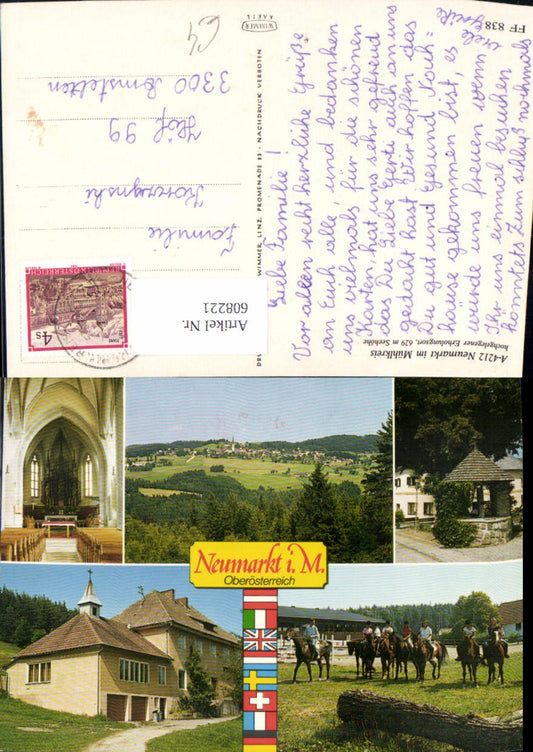 FF 838
WIMMER
KARTE
C4
WIMMER, LINZ, PROMENADE 23 · NACHDRUCK VERBOTEN
Liebe Familie!
Vor allem recht herzliche Grüße
an Euch alle, und bedanken
uns vielmals für die schönen
Karten hat uns sehr gefreud
das Du Liebe Gerti auch an uns
gedacht hast. Wir hoffen das
Du gut und gesund nach=
hause gekommen bist, es
würde uns freuen wenn
Ihr uns einmal besuchen
Zum schluß nochmals
viele Grüße
Familie
Höf 99
3300 Amstetten
REPUBLIK ÖSTERREICH
4 S
Artikel Nr.
608221
A-4212 Neumarkt im Mühlkreis
hochgelegener Erholungsort, 629 m Seehöhe
Neumarkt i. M.
Oberösterreich